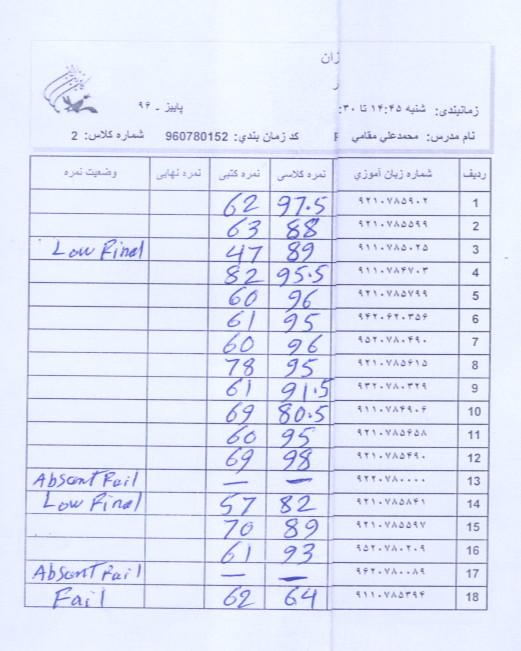 زان
ر
زمانبندی: شنبه ۱۴:۴۵ تا ۳۰: پاییز - ۹۶
نام مدرس: محمدعلي مقامي کد زمان بندي: 960780152 شماره کلاس: 2
ردیف شماره زبان آموزي نمره کلاسی نمره کتبی نمره نهایی وضعیت نمره
1 ۹۲۱۰۷۸۵۹۰۲ 97.5 62
2 ۹۲۱۰۷۸۵۵۹۹ 88 63
3 ۹۱۱۰۷۸۵۰۲۵ 89 47 Low Final
4 ۹۱۱۰۷۸۴۷۰۳ 95.5 82
5 ۹۲۱۰۷۸۵۷۹۹ 96 60
6 ۹۴۲۰۶۲۰۳۵۶ 95 61
7 ۹۵۲۰۷۸۰۴۹۰ 96 60
8 ۹۲۱۰۷۸۵۶۱۵ 95 78
9 ۹۳۲۰۷۸۰۳۲۹ 91.5 61
10 ۹۱۱۰۷۸۴۹۰۶ 80.5 69
11 ۹۲۱۰۷۸۵۶۵۸ 95 60
12 ۹۲۱۰۷۸۵۴۹۰ 98 69
13 ۹۲۲۰۷۸۰۰۰۰ — — Absent Fail
14 ۹۲۱۰۷۸۵۸۴۱ 82 57 Low Final
15 ۹۲۱۰۷۸۵۵۹۷ 89 70
16 ۹۵۲۰۷۸۰۲۰۹ 93 61
17 ۹۶۲۰۷۸۰۰۸۹ — — Absent Fail
18 ۹۱۱۰۷۸۵۳۹۴ 64 62 Fail